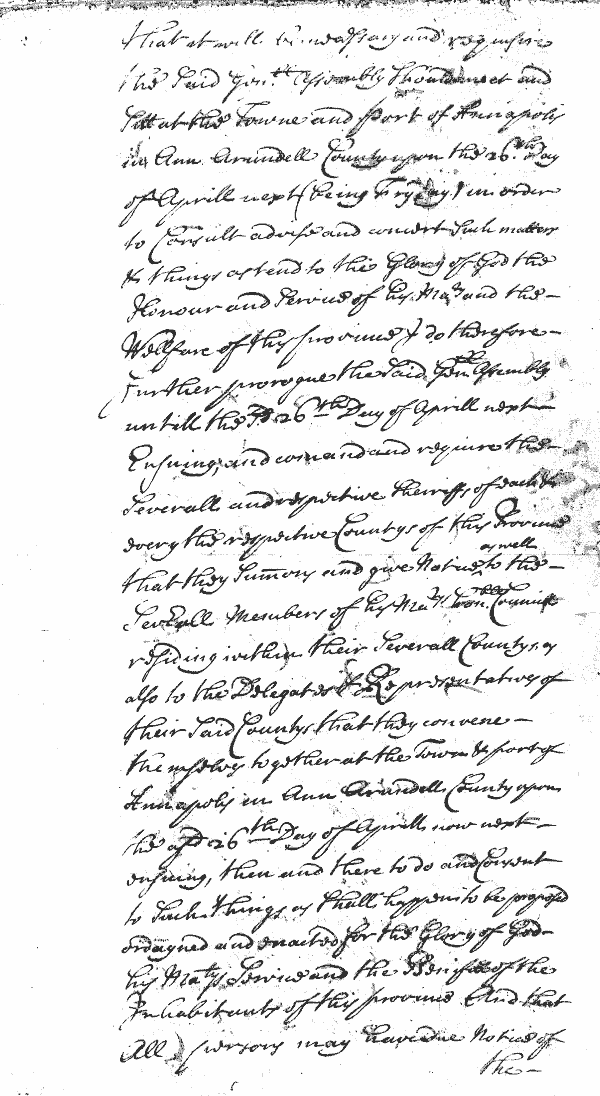 that it will be necessary and requisite
the Said Gen.ll Assembly Should meet and
Sitt at the Towne and Port of Annapolis
in Ann Arundell County upon the 26.th Day
of Aprill next (being Fryday) in order
to Consult advise and concert Such matters
& things as tend to the Glory of God the
Honour and Service of his Ma.ty and the -
Wellfare of this Province I do therefore -
Further prorogue the Said Gen.ll Assembly
untill the Sd 26th Day of Aprill next
Ensuing, and comand and require the -
Severall and respective Sherriffs of each &
every the respective Countys of this Province
that they Summons and give Notice as well to the -
Severall Members of his Ma.tys hon.ble Councill
residing within their Severall Countys, as
also to the Delegates & Representatives of
their Said Countys that they convene -
themselves together at the Town & port of
Annapolis in Ann Arundell County upon
the afd 26th Day of Aprill now next -
ensuing, then and there to do and Consent
to Such things as Shall happen to be proposed
ordayned and enacted for the Glory of God -
his Matys Service and the Benefitt of the
Inhabitants of this province And that
All persons may have due Notice of
the -